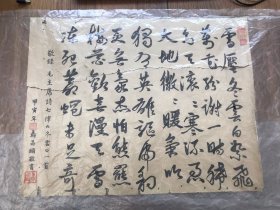 雪壓冬雲白絮飛
萬花紛謝一時稀
高天滚滚寒流急
大地微微暖氣吹
獨有英雄驅虎豹
更無豪杰怕熊羆
梅花歡喜漫天雪
凍死蒼蠅未足奇
敬録 毛主席詩七律冬雲一首
甲寅年 敬書